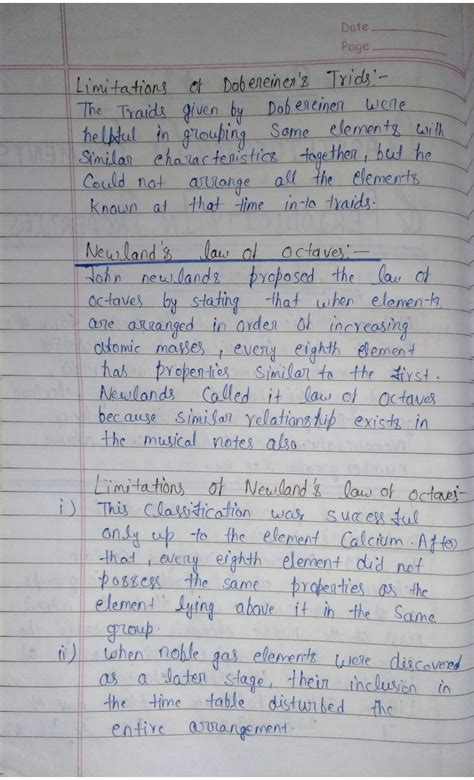 Date
Page
Limitations of Dobereiner's Trids:-
The Traids given by Dobereiner were
helpful in grouping some elements with
Similar characteristics together, but he
Could not arrange all the elements
known at that time in to traids.
Newland's law of octaves:-
John newlands proposed the law of
octaves by stating that when elements
are arranged in order of increasing
atomic masses, every eighth element
has properties similar to the first.
Newlands Called it law of octaves
because similar relationship exists in
the musical notes also.
Limitations of Newland's law of octaves-
i) This Classification was successful
only up to the element Calcium. After
that, every eighth element did not
possess the same properties as the
element lying above it in the same
group.
ii) when noble gas elements were discovered
as a later stage, their inclusion in
the time table disturbed the
entire arrangement.